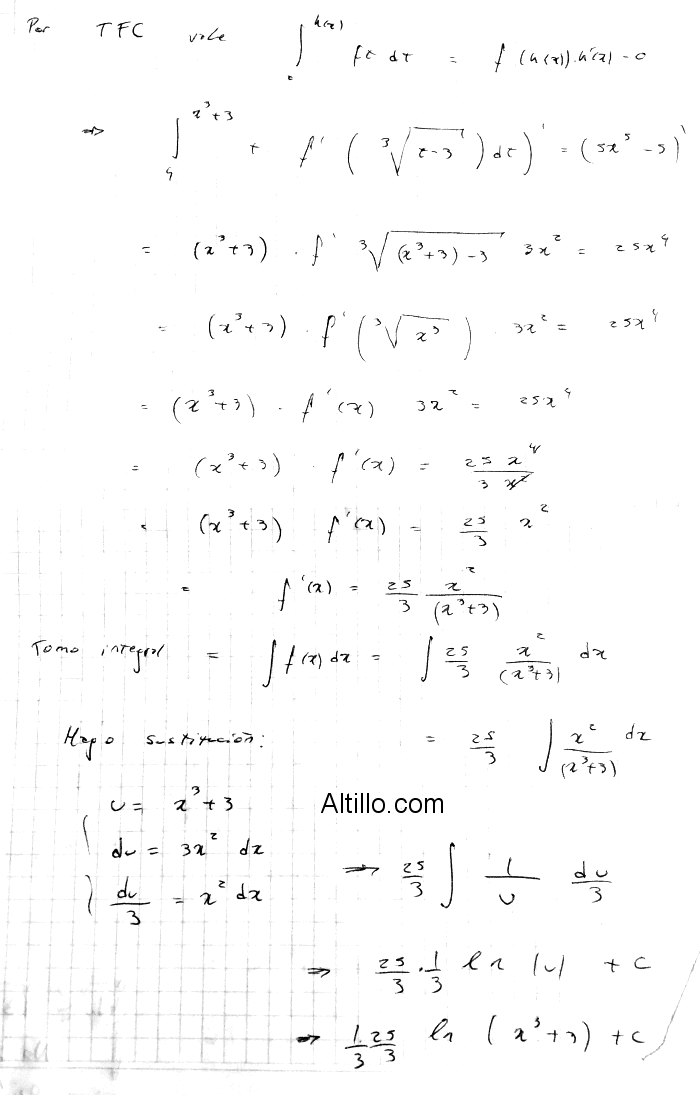 Por TFC vale ∫₀^{h(x)} ft dt = f (h(x)).h'(x) - 0
⇒ ∫₄^{x³+3} t f' ( ∛(t-3) ) dt )' = (5x⁵ - 5)'
= (x³+3) . f' ∛((x³+3)-3) 3x² = 25x⁴
= (x³+3) . f' (∛x³) . 3x² = 25x⁴
= (x³+3) . f'(x) 3x² = 25x⁴
= (x³+3) . f'(x) = 25 x⁴ / 3 x²
= (x³+3) f'(x) = 25/3 x²
= f'(x) = 25/3 x²/(x³+3)
Tomo integral = ∫ f(x) dx = ∫ 25/3 x²/(x³+3) dx
Hago sustitución: = 25/3 ∫ x²/(x³+3) dx
u = x³+3
Altillo.com
du = 3x² dx
du/3 = x² dx
⇒ 25/3 ∫ 1/u du/3
⇒ 25/3 . 1/3 ln |u| + C
⇒ 1/3 . 25/3 ln (x³+3) + C